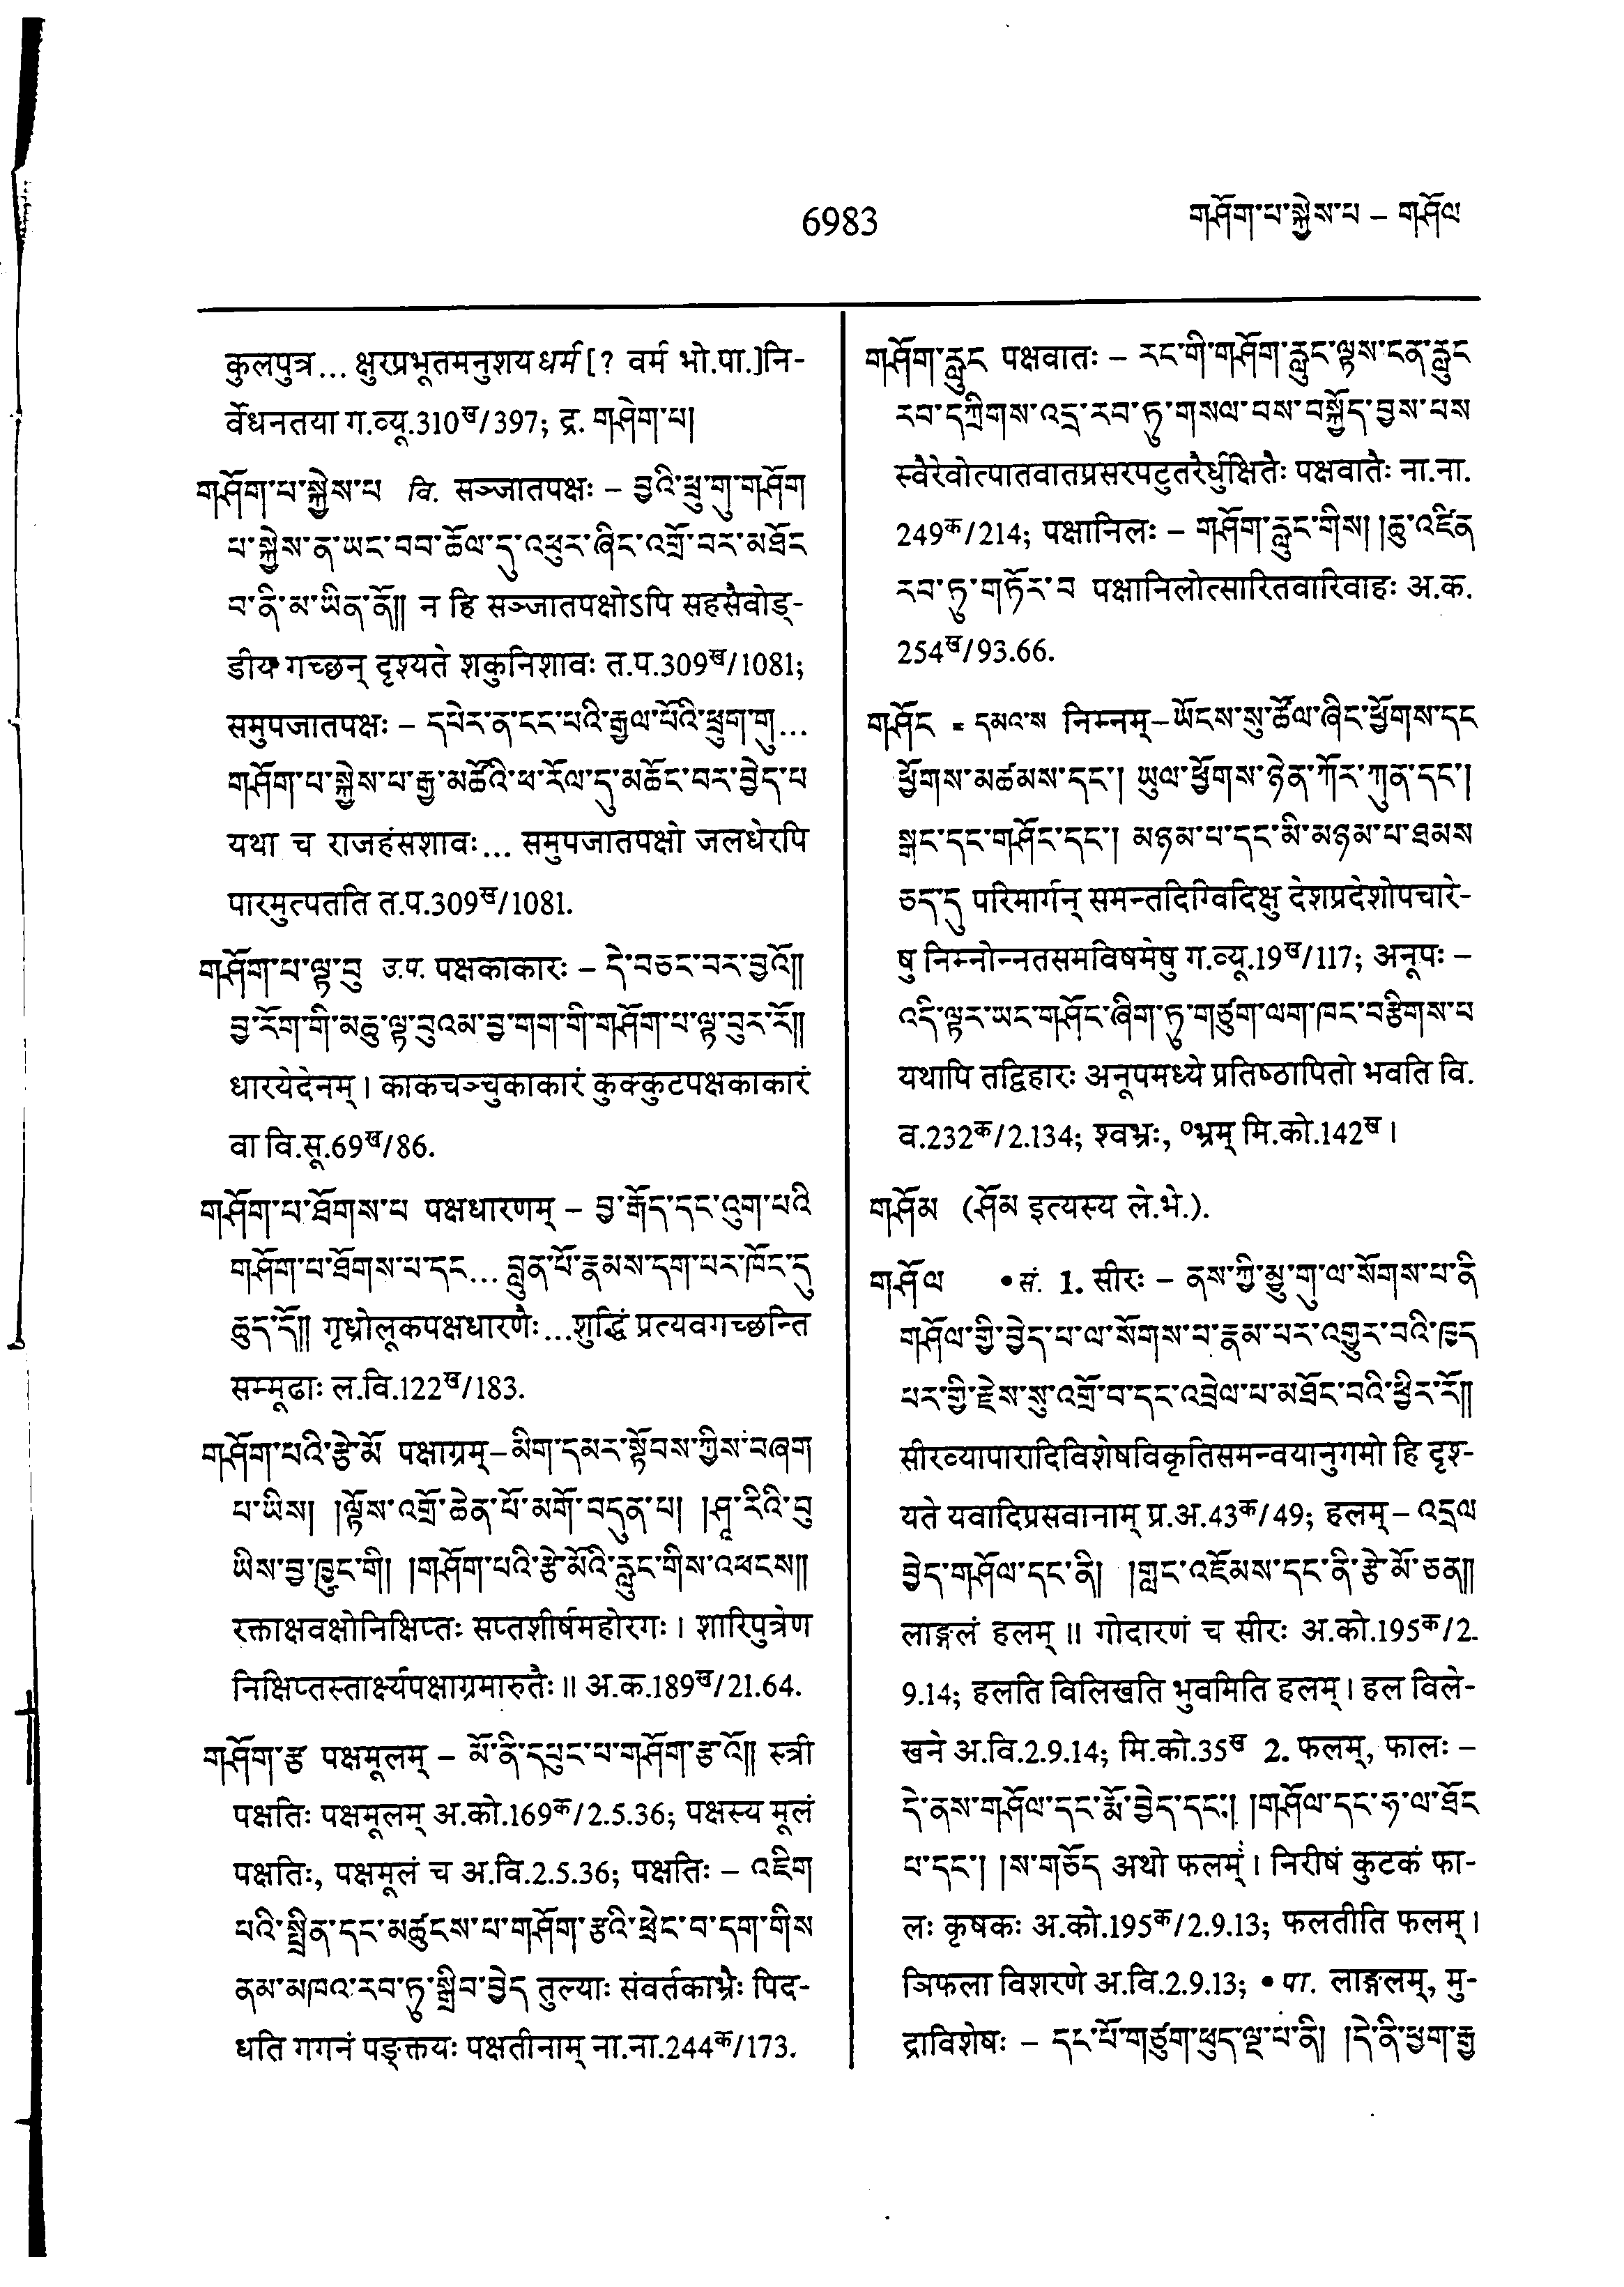 6983
གཤོག་པ་སྐྱེས་པ – གཤོལ
कुलपुत्र... क्षुरप्रभूतमनुशयधर्म [? वर्म भो.पा.]नि-
र्वेधनतया ग.व्यू.310ख/397; द्र. གཤེག་པ།
གཤོག་པ་སྐྱེས་པ वि. सञ्जातपक्षः – བྱའི་ཕྲུ་གུ་གཤོག
པ་སྐྱེས་ན་ཡང་བབ་ཆོལ་དུ་འཕུར་ཞིང་འགྲོ་བར་མཐོང
བ་ནི་མ་ཡིན་ནོ།། न हि सञ्जातपक्षोऽपि सहसैवोड्-
डीय गच्छन् दृश्यते शकुनिशावः त.प.309ख/1081;
समुपजातपक्षः – དཔེར་ན་ངང་པའི་རྒྱལ་པོའི་ཕྲུག་གུ...
གཤོག་པ་སྐྱེས་པ་རྒྱ་མཚོའི་ཕ་རོལ་དུ་མཆོང་བར་བྱེད་པ
यथा च राजहंसशावः... समुपजातपक्षो जलधेरपि
पारमुत्पतति त.प.309ख/1081.
གཤོག་པ་ལྟ་བུ उ.प. पक्षकाकारः – དེ་བཅང་བར་བྱའོ།།
བྱ་རོག་གི་མཆུ་ལྟ་བུའམ་བྱ་གག་གི་གཤོག་པ་ལྟ་བུར་རོ།།
धारयेदेनम् । काकचञ्चुकाकारं कुक्कुटपक्षकाकारं
वा वि.सू.69ख/86.
གཤོག་པ་ཐོགས་པ पक्षधारणम् – བྱ་རྒོད་དང་འུག་པའི
གཤོག་པ་ཐོགས་པ་དང... བླུན་པོ་རྣམས་དག་པར་ཁོང་དུ
ཆུད་དོ།། गृध्रोलूकपक्षधारणैः...शुद्धिं प्रत्यवगच्छन्ति
सम्मूढाः ल.वि.122ख/183.
གཤོག་པའི་རྩེ་མོ पक्षाग्रम् – མིག་དམར་སྟོབས་ཀྱིས་བཞག
པ་ཡིས། །ལྟོས་འགྲོ་ཆེན་པོ་མགོ་བདུན་པ། །ཤཱ་རིའི་བུ
ཡིས་བྱ་ཁྱུང་གི། །གཤོག་པའི་རྩེ་མོའི་རླུང་གིས་འཕངས།།
रक्ताक्षवक्षोनिक्षिप्तः सप्तशीर्षमहोरगः । शारिपुत्रेण
निक्षिप्तस्तार्क्ष्यपक्षाग्रमारुतैः ॥ अ.क.189ख/21.64.
གཤོག་རྩ पक्षमूलम् – མོ་ནི་དཔུང་པ་གཤོག་རྩ་འོ།། स्त्री
पक्षतिः पक्षमूलम् अ.को.169क/2.5.36; पक्षस्य मूलं
पक्षतिः, पक्षमूलं च अ.वि.2.5.36; पक्षतिः – འཇིག
པའི་སྤྲིན་དང་མཚུངས་པ་གཤོག་རྩའི་ཕྲེང་བ་དག་གིས
ནམ་མཁའ་རབ་ཏུ་སྒྲིབ་བྱེད तुल्याः संवर्तकाभ्रैः पिद-
धति गगनं पङ्क्तयः पक्षतीनाम् ना.ना.244क/173.
གཤོག་རླུང पक्षवातः – རང་གི་གཤོག་རླུང་ལྟས་ངན་རླུང
རབ་དཀྲིགས་འདྲ་རབ་ཏུ་གསལ་བས་བསྐྱོད་བྱས་པས
स्वैरेवोत्पातवातप्रसरपटुतरैर्धुक्षितैः पक्षवातैः ना.ना.
249क/214; पक्षानिलः – གཤོག་རླུང་གིས། །ཆུ་འཛིན
རབ་ཏུ་གཏོར་བ पक्षानिलोत्सारितवारिवाहः अ.क.
254ख/93.66.
གཤོང = དམའ་ས निम्नम् – ཡོངས་སུ་ཚོལ་ཞིང་ཕྱོགས་དང
ཕྱོགས་མཚམས་དང་། ཡུལ་ཕྱོགས་ཉེན་ཀོར་ཀུན་དང་།
སྒང་དང་གཤོང་དང་། མཉམ་པ་དང་མི་མཉམ་པ་ཐམས
ཅད་དུ परिमार्गन् समन्तदिग्विदिक्षु देशप्रदेशोपचारे-
षु निम्नोन्नतसमविषमेषु ग.व्यू.19ख/117; अनूपः –
འདི་ལྟར་ཡང་གཤོང་ཞིག་ཏུ་གཙུག་ལག་ཁང་བརྩིགས་པ
यथापि तद्विहारः अनूपमध्ये प्रतिष्ठापितो भवति वि.
व.232क/2.134; श्वभ्रः, ०भ्रम् मि.को.142ख ।
གཤོམ (ཤོམ इत्यस्य ले.भे.).
གཤོལ • सं. 1. सीरः – ནས་ཀྱི་མྱུ་གུ་ལ་སོགས་པ་ནི
གཤོལ་གྱི་བྱེད་པ་ལ་སོགས་པ་རྣམ་པར་འགྱུར་བའི་ཁྱད
པར་གྱི་རྗེས་སུ་འགྲོ་བ་དང་འབྲེལ་པ་མཐོང་བའི་ཕྱིར་རོ།།
सीरव्यापारादिविशेषविकृतिसमन्वयानुगमो हि दृश-
यते यवादिप्रसवानाम् प्र.अ.43क/49; हलम् – འདྲལ
བྱེད་གཤོལ་དང་ནི། །གླང་འཇོམས་དང་ནི་རྩེ་མོ་ཅན།།
लाङ्गलं हलम् ॥ गोदारणं च सीरः अ.को.195क/2.
9.14; हलति विलिखति भुवमिति हलम् । हल विले-
खने अ.वि.2.9.14; मि.को.35ख 2. फलम्, फालः –
དེ་ནས་གཤོལ་དང་རྨོ་བྱེད་དང་། །གཤོལ་དང་ཧ་ལ་ཐོང
པ་དང་། །ས་གཅོད अथो फलम् । निरीषं कुटकं फा-
लः कृषकः अ.को.195क/2.9.13; फलतीति फलम् ।
ञिफला विशरणे अ.वि.2.9.13; • पा. लाङ्गलम्, मु-
द्राविशेषः – དང་པོ་གཙུག་ཕུད་ལྔ་པ་ནི། །དེ་ནི་ཕྱག་རྒྱ